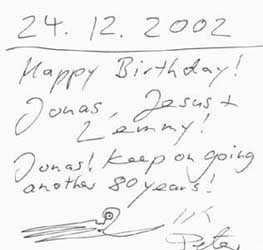 24. 12. 2002
Happy Birthday!
Jonas, Jesus +
Lemmy!
Jonas! Keep on going
another 80 years!
Peter